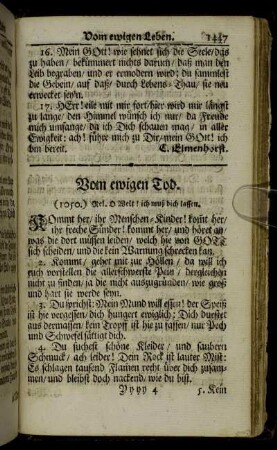 Vom ewigen Leben. 1447
16. Mein GOtt! wie sehnet sich die Seele/ das
zu haben/ bekümmert nichts darum/ daß man den
Leib begraben/ und er ermodern wird; du sammlest
die Gebein/ auf daß/ durch Lebens-Thau/ sie neu
erwecket seyn.
17. HErr! eile mit mir fort/ hier wird mir längst
zu lange/ den Himmel wünsch ich nur/ da Freude
mich umfange/ da ich Dich schauen mag/ in aller
Ewigkeit: ach! führe mich zu Dir/ mein GOtt! ich
bin bereit. C. Elmenhorst.
Vom ewigen Tod.
(1050.) Mel. O Welt! ich muß dich lassen.
KOmmt her/ ihr Menschen-Kinder! komt her/
ihr freche Sünder! kommt her/ und höret an/
was die dort müssen leiden/ welch hie von GOTT
sich scheiden/ und die kein Warnung schrecken kan.
2. Kommt/ gehet mit zur Höllen/ da will ich
euch vorstellen die allerschwerste Pein/ dergleichen
nicht zu finden/ ja die nicht auszugründen/ wie groß
und hart sie werde seyn.
3. Du sprichst: Mein Mund will essen! der Speiß
ist hie vergessen/ dich hungert ewiglich; Dich durstet
aus dermassen/ kein Tropff ist hie zu fassen/ nur Pech
und Schwefel sättigt dich.
4. Du suchest schöne Kleider/ und saubern
Schmuck/ ach leider! Dein Rock ist lauter Mist:
Es schlagen tausend Flamen recht über dich zusam-
men/ und bleibst doch nackend/ wie du bist.
Yyyy 4 5. Kein